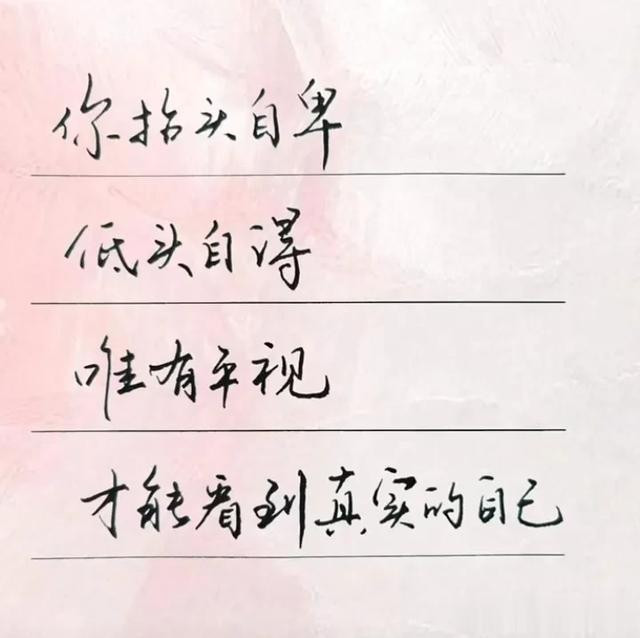 你抬头自卑
低头自得
唯有平视
才能看到真实的自己